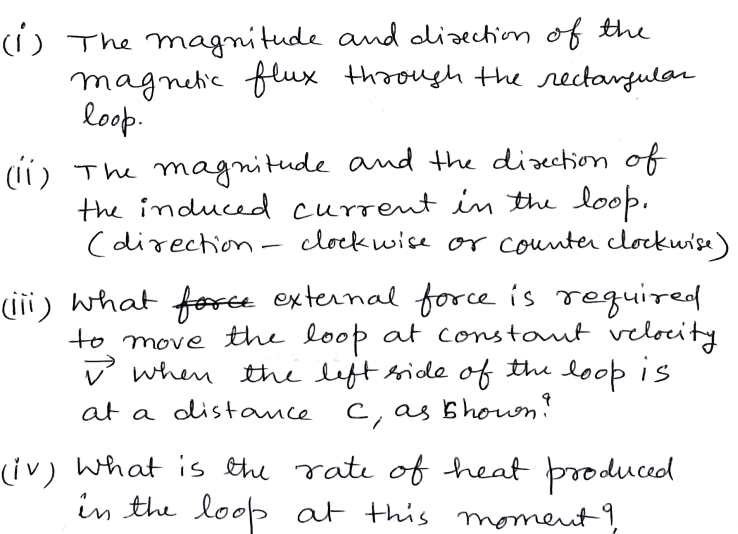 (i) The magnitude and direction of the
magnetic flux through the rectangular
loop.
(ii) The magnitude and the direction of
the induced current in the loop.
(direction - clockwise or counter clockwise)
(iii) What force external force is required
to move the loop at constant velocity
v⃗ when the left side of the loop is
at a distance c, as shown?
(iv) What is the rate of heat produced
in the loop at this moment?